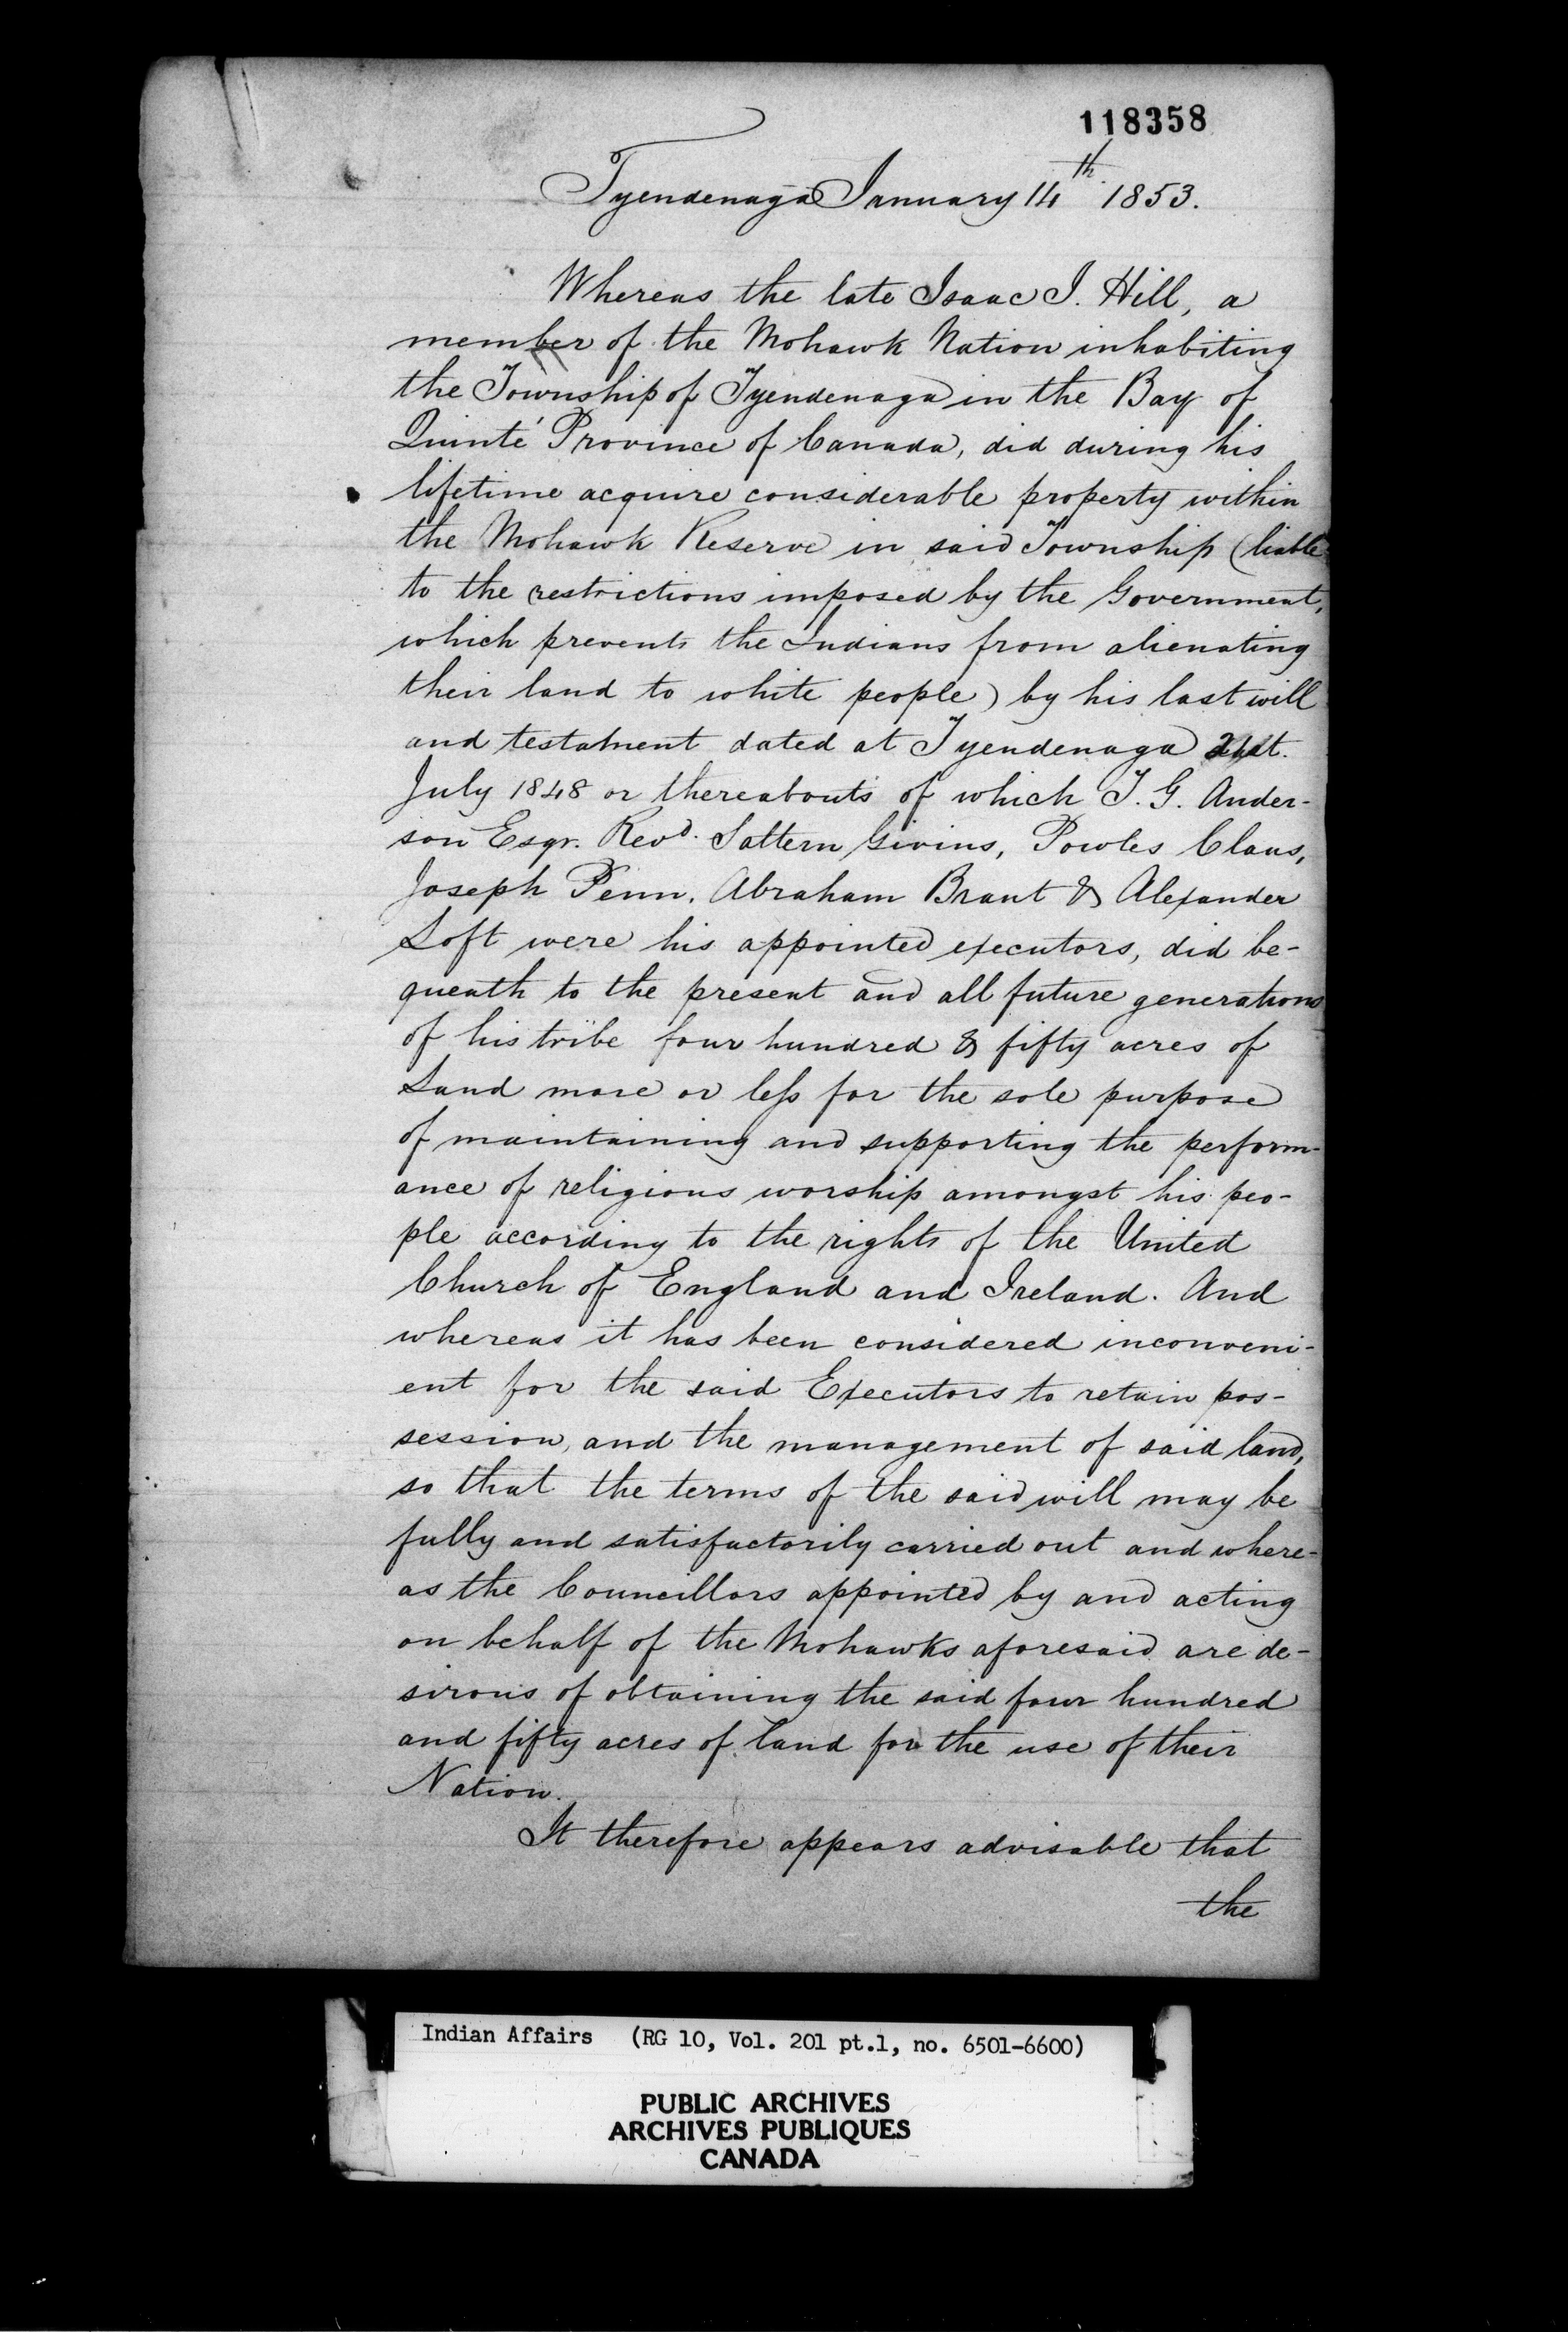 118358
Tyendenaga January 14th 1853.
Whereas the late Isaac I. Hill, a
member of the Mohawk Nation inhabiting
the Township of Tyendenaga in the Bay of
Quinté Province of Canada, did during his
lifetime acquire considerable property within
the Mohawk Reserve in said Township (liable
to the restrictions imposed by the Government,
which prevents the Indians from alienating
their land to white people) by his last will
and testament dated at Tyendenaga 21st.
July 1848 or thereabouts of which T. G. Ander-
son Esqr. Revd. Saltern Givins, Powles Claus,
Joseph Penn, Abraham Brant & Alexander
Loft were his appointed executors, did be-
queath to the present and all future generations
of his tribe four hundred & fifty acres of
Land more or less for the sole purpose
of maintaining and supporting the perform-
ance of religious worship amongst his peo-
ple according to the rights of the United
Church of England and Ireland. And
whereas it has been considered inconveni-
ent for the said Executors to retain pos-
session, and the management of said land,
so that the terms of the said will may be
fully and satisfactorily carried out and where-
as the Councillors appointed by and acting
on behalf of the Mohawks aforesaid are de-
sirous of obtaining the said four hundred
and fifty acres of land for the use of their
Nation.
It therefore appears advisable that
the
Indian Affairs (RG 10, Vol. 201 pt.1, no. 6501-6600)
PUBLIC ARCHIVES
ARCHIVES PUBLIQUES
CANADA